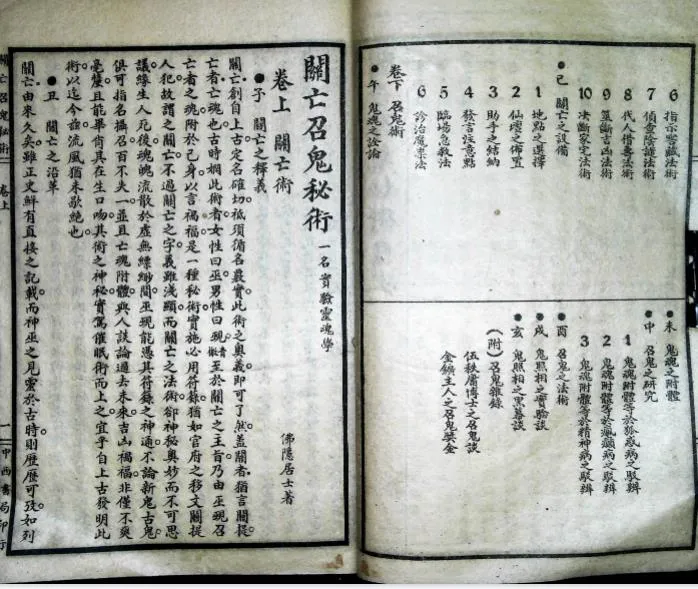 6 指示密藏法術
7 偵查陰謀法術
8 代人惜妻法術
9 筮斷吉凶法術
10 决斷家宅法術
● 己 關亡之設備
1 地點之選擇
2 仙壇之佈置
3 助手之結納
4 發言注意點
5 臨場急救法
6 診治魔祟法
卷下 召鬼術
● 午 鬼魂之詮論
● 未 鬼魂之附體
● 申 召鬼之研究
1 鬼魂附體等於狐惑病之駁辨
2 鬼魂附體等於瘋癲病之駁辨
3 鬼魂附體等於精神病之駁辨
● 酉 召鬼之法術
● 戌 鬼照相之實驗談
● 亥 鬼照相之黑幕談
(附) 召鬼雜錄
伍秩庸博士之召鬼談
金鑛主人之召鬼獎金
關亡召鬼秘術 一名實驗靈魂學
佛隱居士著
卷上 關亡術
● 子 關亡之釋義
關亡創自上古定名確切祗須循名覈實此術之奥義即可了然蓋關者猶言關提
亡者亡魂也古時擱此術者女性曰巫男性曰覡至於關亡之主旨乃由巫覡召
亡者之魂附於己身以言禍福是一種秘術實施必用符籙猶如官府之移文關提
人犯故謂之關亡不過關亡之字義雖淺顯而關亡之法術卻神秘奥妙而不可思
議緣生人死後魂魄流散於虛無縹緲間巫覡能憑其符籙之神通不論新鬼古鬼
俱可指名攝召百不失一並且亡魂附體與人談論過去未來吉凶禍福非僅不爽
毫釐且能畢肖其在生口吻其術之神秘實駕催眠術而上之宜乎自上古發明此
術以迄今茲流風猶未歇絶也
● 丑 關亡之沿革
關亡由來久矣雖正史鮮有直接之記載而神巫之見靈於古時則歷歷可攷如列
關亡召鬼秘術 卷上
一 中西書局印行